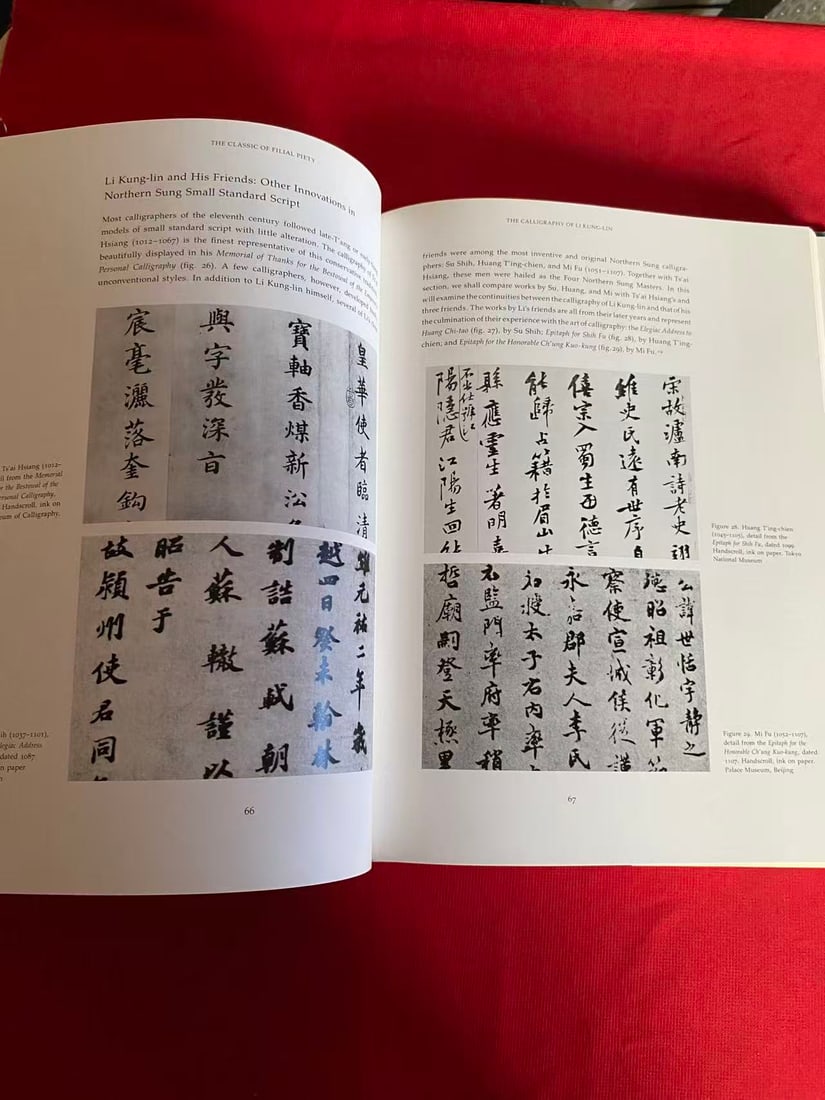 THE CLASSIC OF FILIAL PIETY
Li Kung-lin and His Friends: Other Innovations in
Northern Sung Small Standard Script
Most calligraphers of the eleventh century followed late-T'ang or early
models of small standard script with little alteration. The calligraphy of
Hsiang (1012–1067) is the finest representative of this conservative
beautifully displayed in his Memorial of Thanks for the Bestowal of the
Personal Calligraphy (fig. 26). A few calligraphers, however, developed
unconventional styles. In addition to Li Kung-lin himself, several of
皇華使者臨清
寶軸香煤新
與字發深盲
宸毫灑落奎鈎
Ts'ai Hsiang (1012–
from the Memorial
for the Bestowal of the
Personal Calligraphy,
Handscroll, ink on
Museum of Calligraphy,
維元祐二年歲
越四日癸未翰林
制誥蘇軾朝
人蘇轍謹以
昭告于
故潁州使君同
(1037–1101),
Elegiac Address
dated 1087
on paper
66
THE CALLIGRAPHY OF LI KUNG-LIN
friends were among the most inventive and original Northern Sung calligra-
phers: Su Shih, Huang T'ing-chien, and Mi Fu (1051–1107). Together with Ts'ai
Hsiang, these men were hailed as the Four Northern Sung Masters. In this
section, we shall compare works by Su, Huang, and Mi with Ts'ai Hsiang's and
will examine the continuities between the calligraphy of Li Kung-lin and that of his
three friends. The works by Li's friends are all from their later years and represent
the culmination of their experience with the art of calligraphy: the Elegiac Address to
Huang Chi-tao (fig. 27), by Su Shih; Epitaph for Shih Fu (fig. 28), by Huang T'ing-
chien; and Epitaph for the Honorable Ch'ung Kuo-kung (fig. 29), by Mi Fu.
宋故瀘南詩老史翊
維史氏遠有世序自
僖宗入蜀生西德言
能歸占籍於眉山
縣應靈生著明嘉
不出仕
陽隱君江陽生回
Figure 28. Huang T'ing-chien
(1045–1105), detail from the
Epitaph for Shih Fu, dated 1099.
Handscroll, ink on paper. Tokyo
National Museum
公諱世恬字靜之
德昭祖彰化軍節
察使宣城侯從謹
永嘉郡夫人李氏
初授太子右內率
元監門率府率稍
哲廟嗣登天極
Figure 29. Mi Fu (1052–1107),
detail from the Epitaph for the
Honorable Ch'ung Kuo-kung, dated
1107. Handscroll, ink on paper.
Palace Museum, Beijing
67